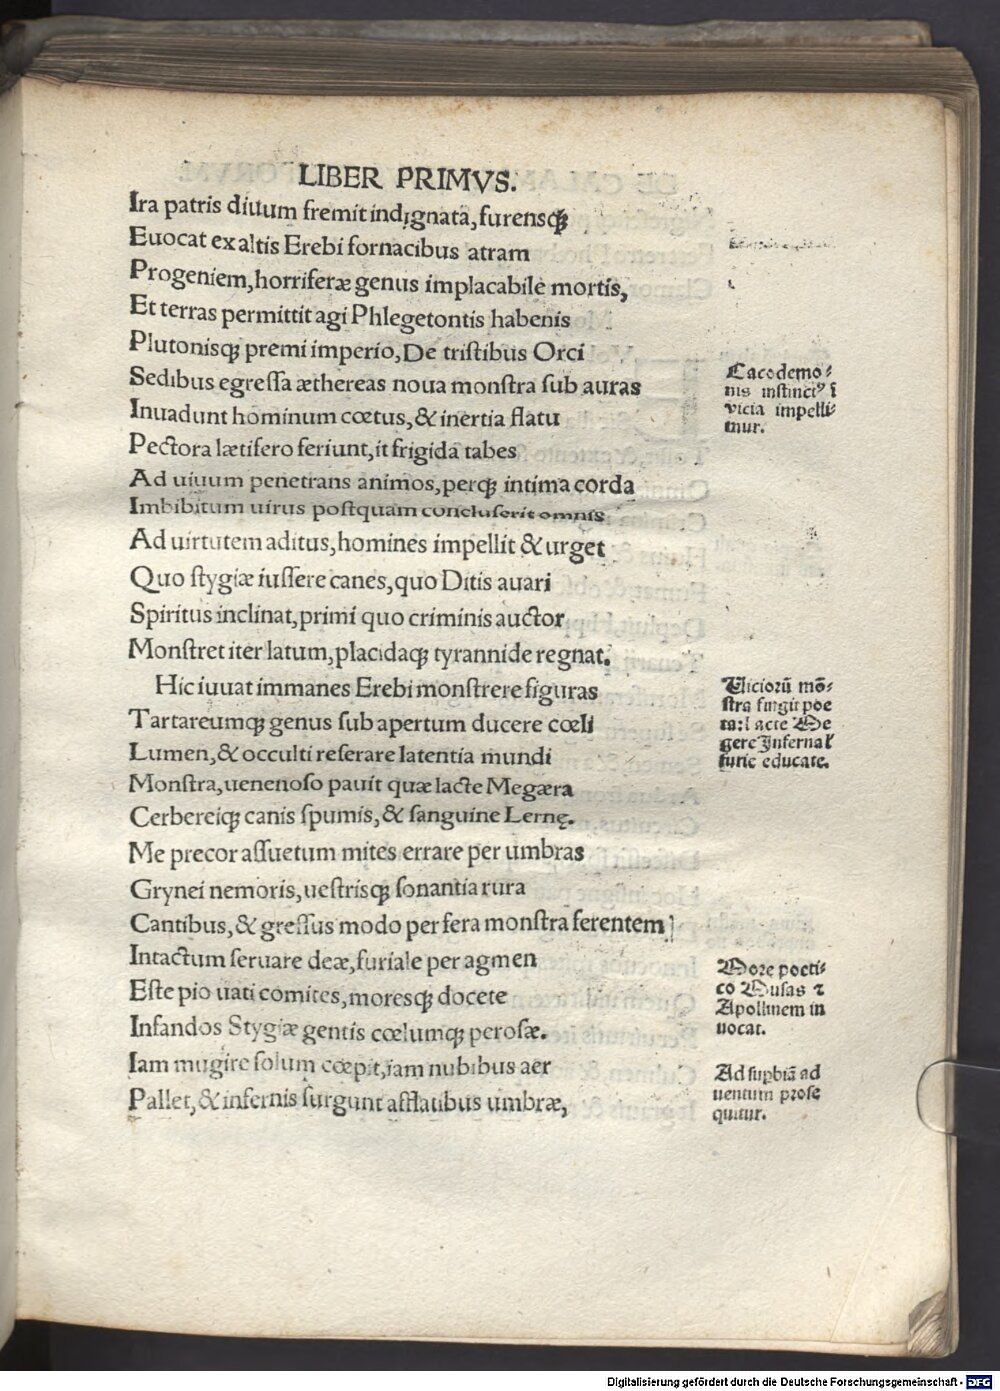 LIBER PRIMVS.
Ira patris diuum fremit indignata, furensqꝫ
Euocat ex altis Erebi fornacibus atram
Progeniem, horriferæ genus implacabile mortis,
Et terras permittit agi Phlegetontis habenis
Plutonisqꝫ premi imperio, De tristibus Orci
Sedibus egressa æthereas noua monstra sub auras
Inuadunt hominum cœtus, & inertia flatu
Pectora lætifero feriunt, it frigida tabes
Ad uiuum penetrans animos, perqꝫ intima corda
Imbibitum uirus postquam concluserit omnis
Ad uirtutem aditus, homines impellit & urget
Quo stygiæ iussere canes, quo Ditis auari
Spiritus inclinat, primi quo criminis auctor
Monstret iter latum, placidaqꝫ tyrannide regnat.
Hic iuuat immanes Erebi monstrere figuras
Tartareumqꝫ genus sub apertum ducere cœli
Lumen, & occulti reserare latentia mundi
Monstra, uenenoso pauit quæ lacte Megæra
Cerbereiqꝫ canis spumis, & sanguine Lernę.
Me precor assuetum mites errare per umbras
Grynei nemoris, uestrisqꝫ sonantia rura
Cantibus, & gressus modo per fera monstra ferentem
Intactum seruare deæ, furiale per agmen
Este pio uati comites, moresqꝫ docete
Infandos Stygiæ gentis cœlumqꝫ perosæ.
Iam mugire solum cœpit, iam nubibus aer
Pallet, & infernis surgunt afflatibus umbræ,
Cacodemo⸗
nis instinctꝰ ī
vicia impelli⸗
mur.
Uicioꝝ mō⸗
stra surgit poe
ta: lacte Me
gere Infernal
furie educate.
More poeti⸗
co Musas ⁊
Apollinem in
uocat.
Ad supbiā ad
uentum prose
quitur.
Digitalisierung gefördert durch die Deutsche Forschungsgemeinschaft - DFG